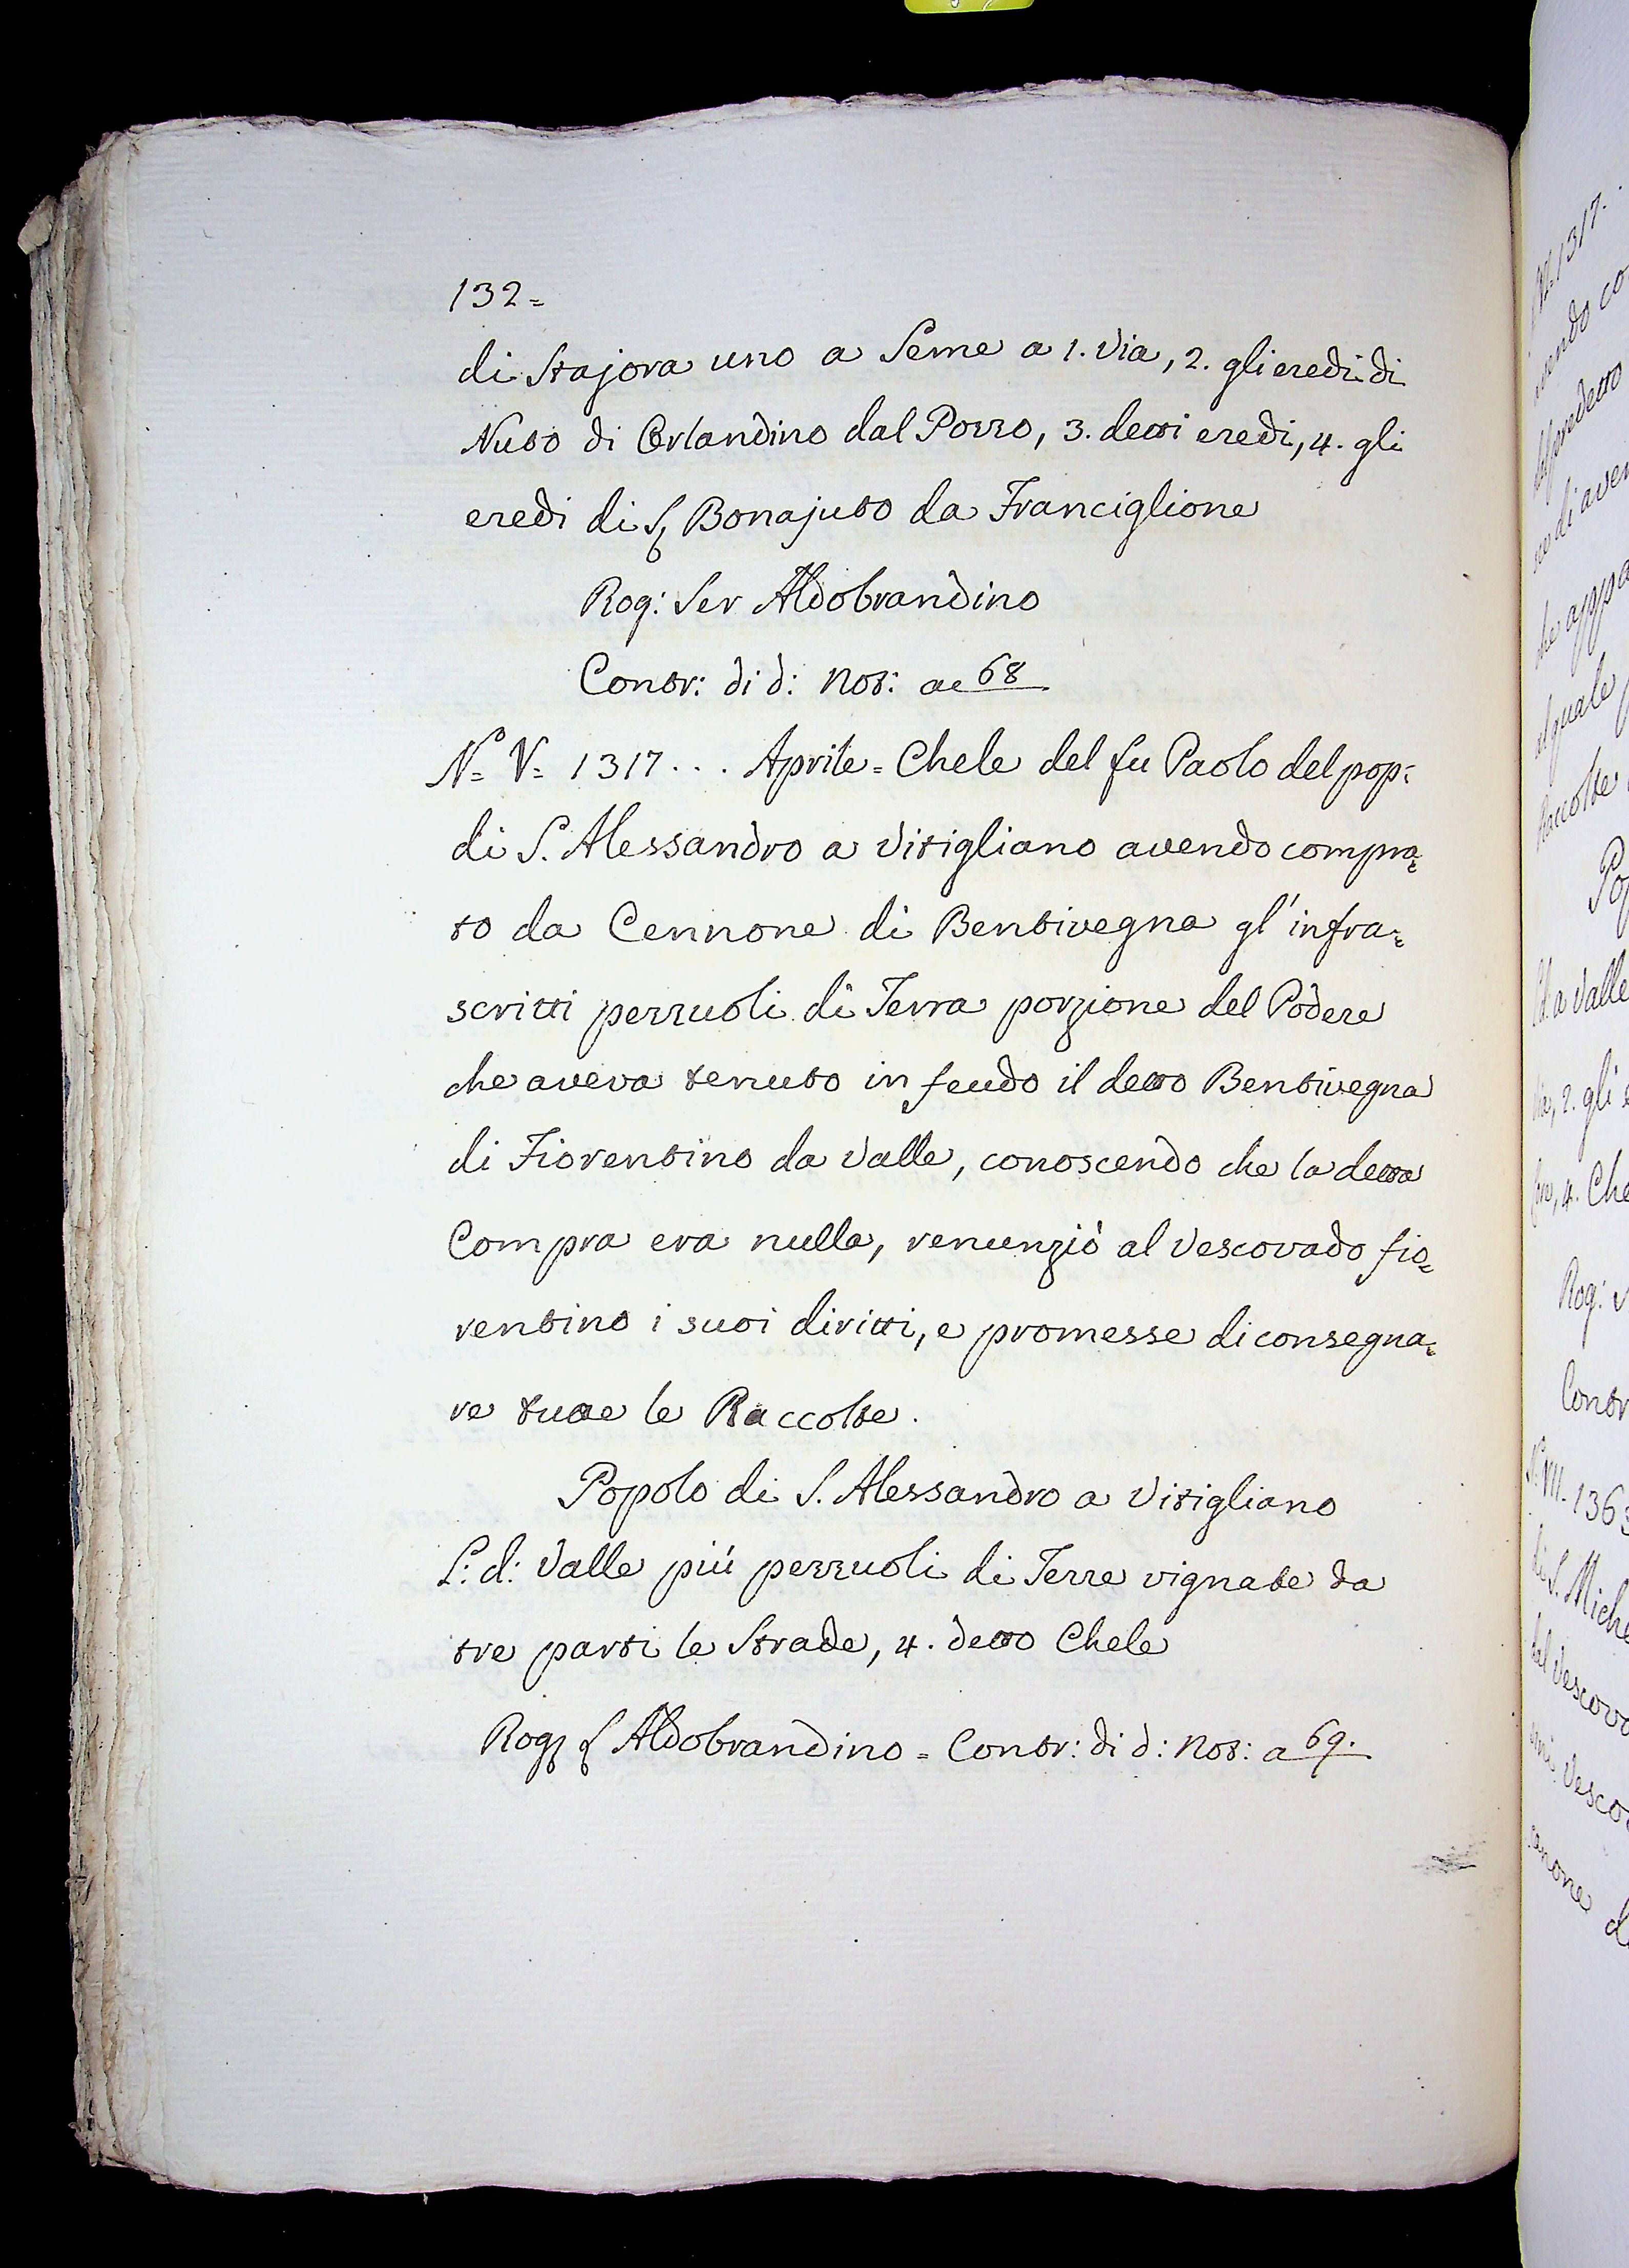 132=
di Stajora uno a Seme a 1. Via, 2. gli eredi di
Nuto di Orlandino dal Pozzo, 3. detti eredi, 4. gli
eredi di S. Bonajuto da Franciglione
Rog: Ser Aldobrandino
Contr: di d: Not: ac 68
N.= V= 1317... Aprile= Chele del fu Paolo del pop:
di S. Alessandro a Vitigliano avendo compra=
to da Cennone di Bentivegna gl'infra=
scritti pezzuoli di Terra porzione del Podere
che aveva tenuto in feudo il detto Bentivegna
di Fiorentino da Valle, conoscendo che la detta
Compra era nulla, renunziò al Vescovado fio=
rentino i suoi diritti, e promesse di consegna=
re tutte le Raccolte.
Popolo di S. Alessandro a Vitigliano
L: d: Valle più pezzuoli di Terre vignate da
tre parti le Strade, 4. detto Chele
Rog. S. Aldobrandino= Contr: di d: Not: a 69.
1317.
Raccolte
a Valle
2. gli
4. Che
Rog:
Contr
N. VII. 1363
di S. Miche